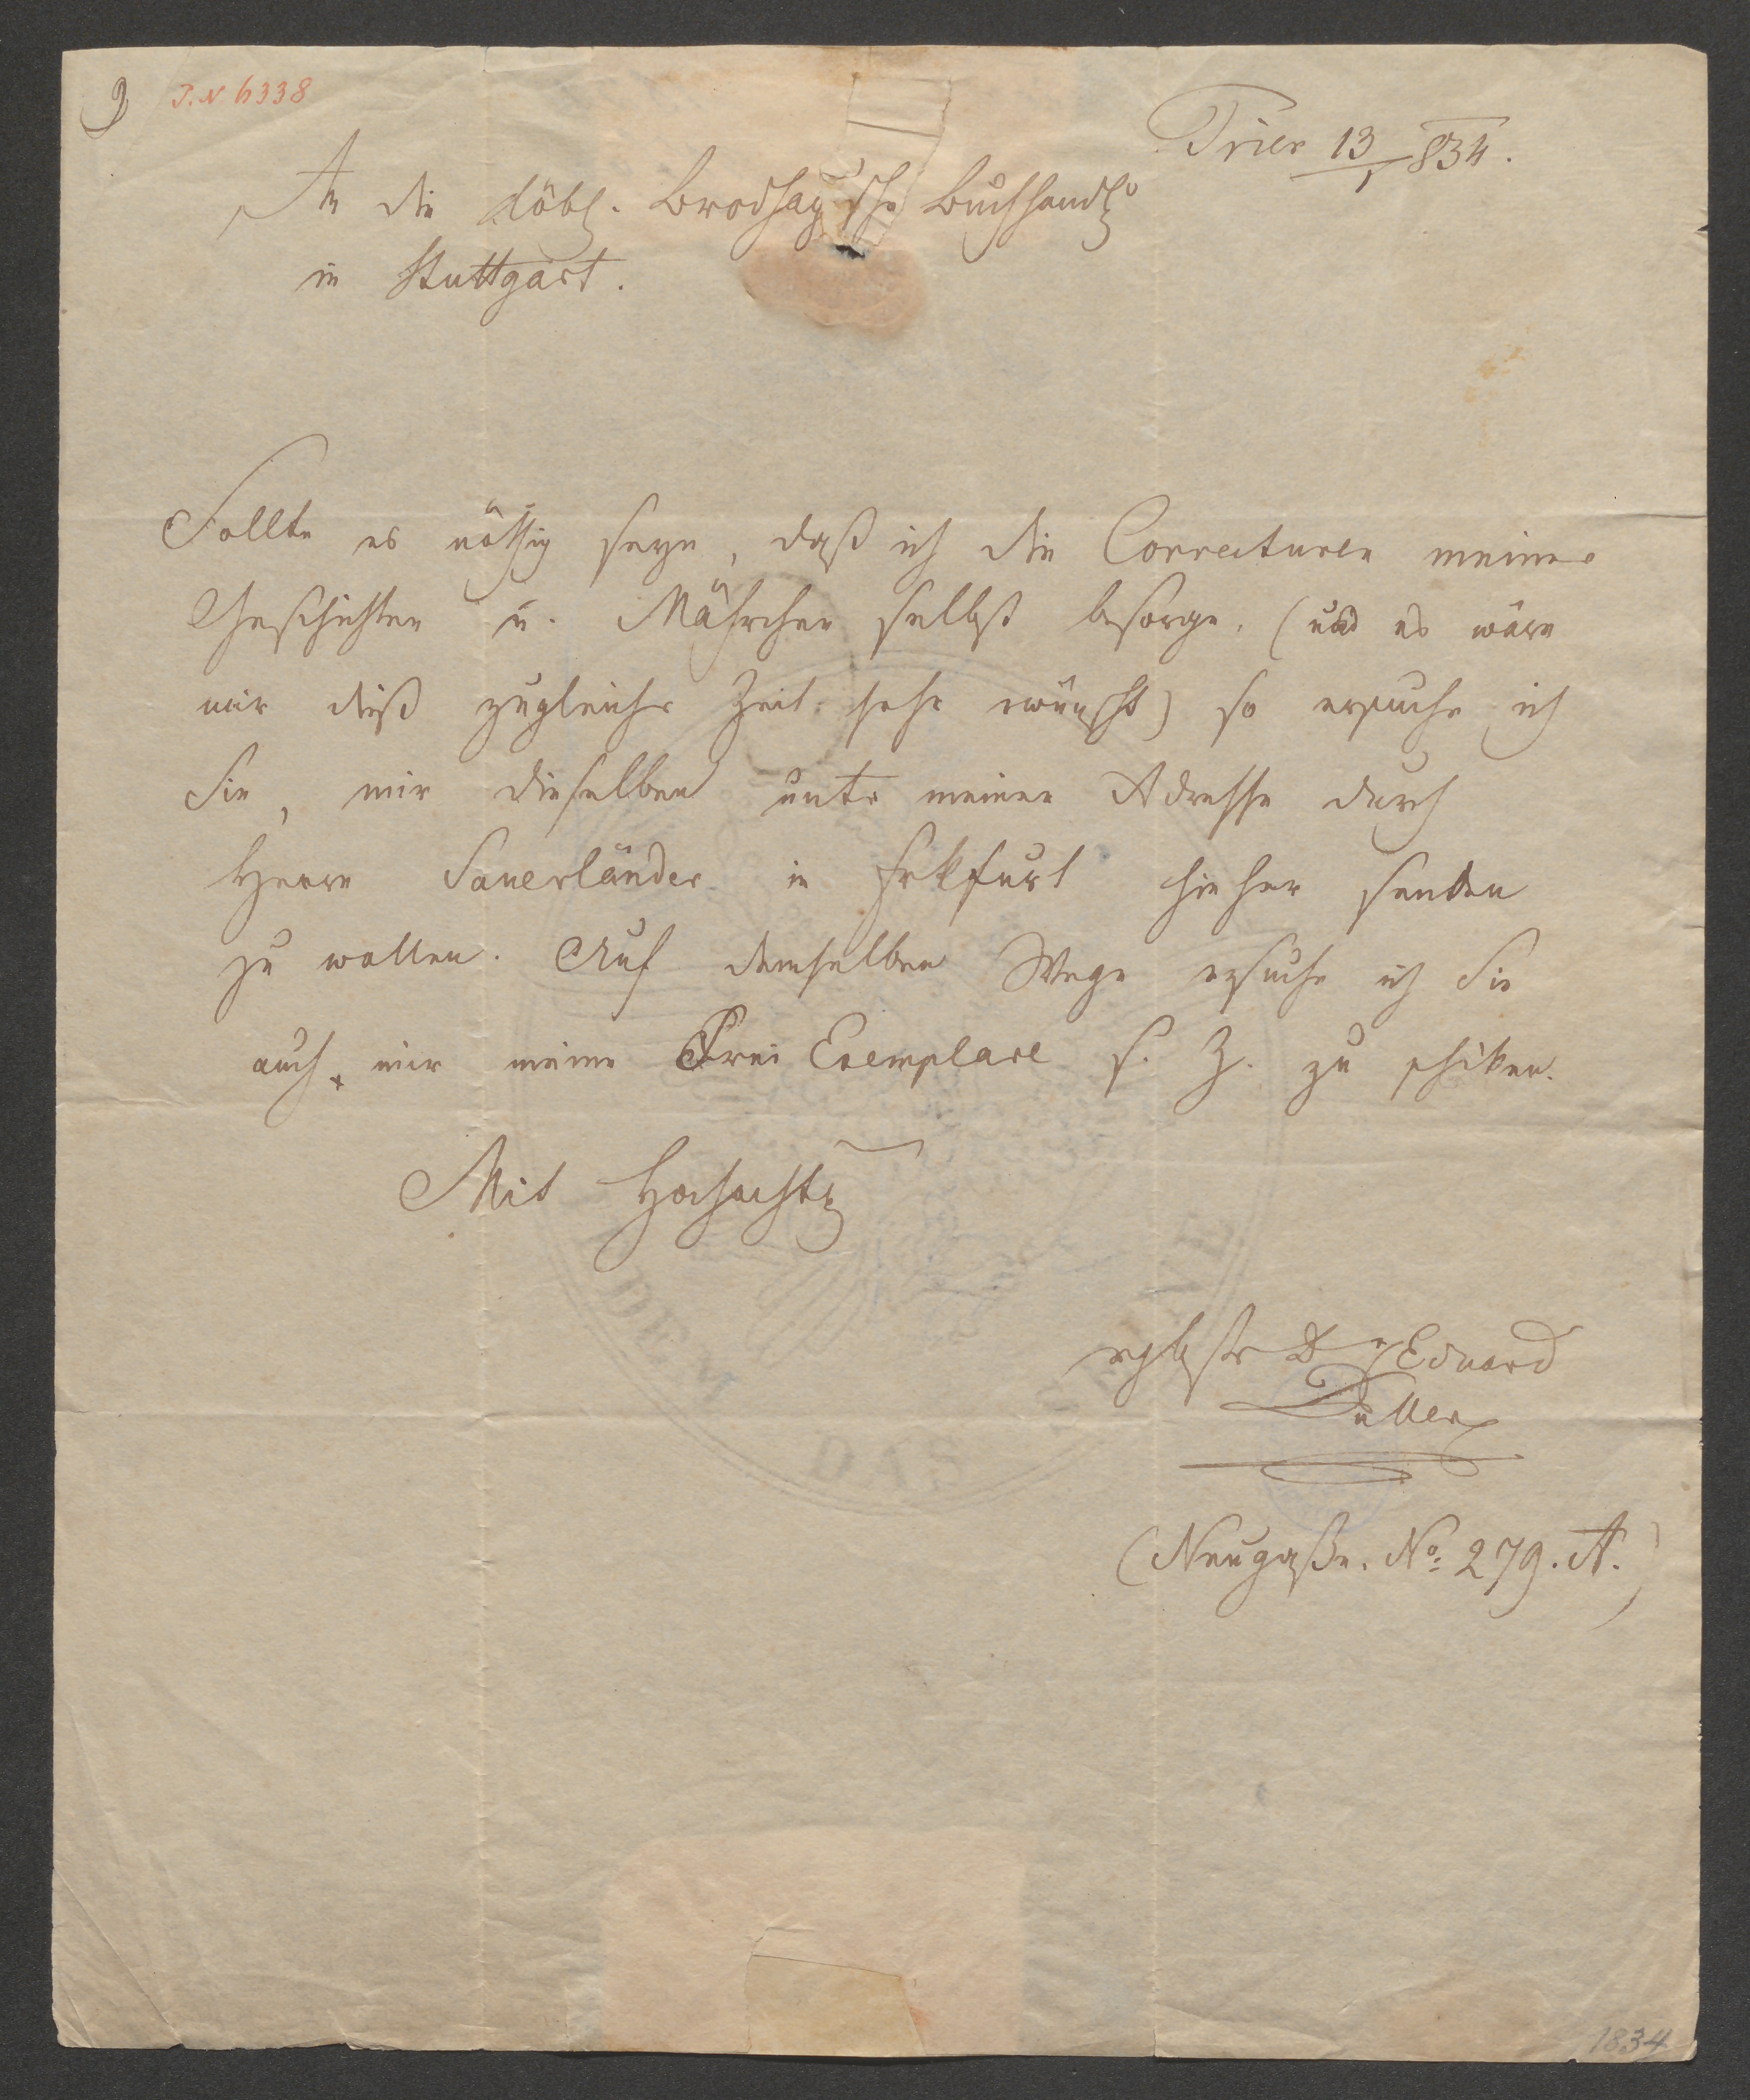 9 J. N 6338
Trier 13/1 834.
An die Löbl. Brodhag'sche Buchhandlg
in Stuttgart.
Sollte es nöthig seyn, daß ich die Correcturen meiner
Geschichten u. Mährchen selbst besorge, (und es wäre
mir dieß zugleicher Zeit sehr erwünscht) so ersuche ich
Sie, mir dieselben unter meiner Adresse durch
Herrn Sauerländer in Frkfurt hieher senden
zu wollen. Auf demselben Wege ersuche ich Sie
auch, mir meine Frei Exemplare s. Z. zu schiken.
Mit Hochachtg
ergbster Dr Eduard
Duller
(Neugaße. No: 279. A.)
DAS DEM
1834